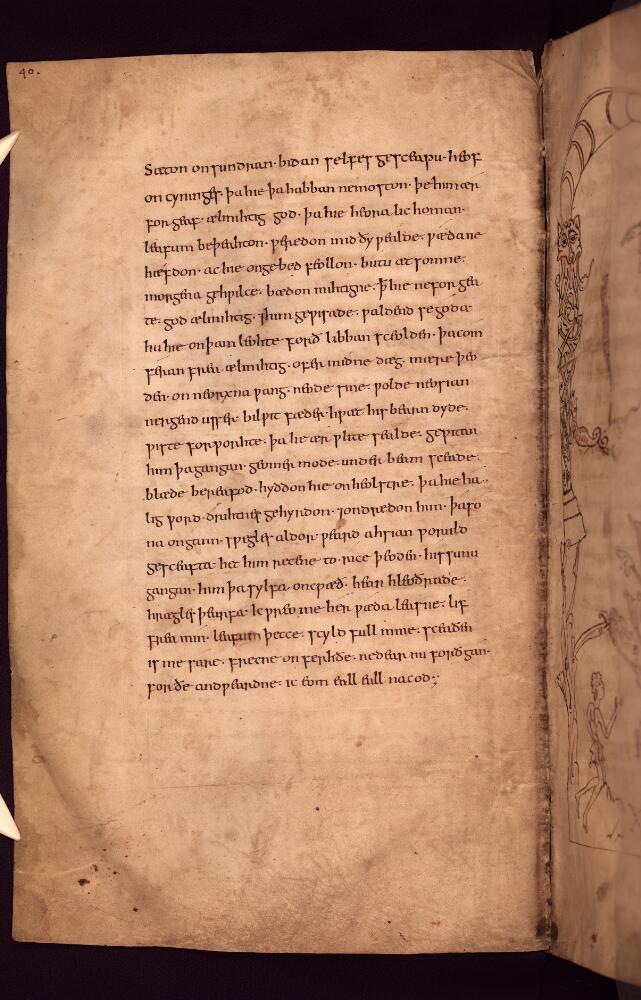 40.
Sæton onsundran · bidan selfes gesceapu · heof
on cyninges · þa hie þa habban nemoston · þe him ær
forgeaf · ælmihtig god · þa hie heora lic homan ·
leafum beþeahton · ƿeredon mid ðy ƿealde · ƿæda ne
hæfdon · ac hie ongebed feollon · butu æt somne ·
morgena gehƿilce · bædon mihtigne · ꝥ hie ne for gea
te · god ælmihtig · ⁊ him geƿisade · ƿaldend se goda ·
hu hie on þam leohte forð libban sceolden · þa com
feran frea ælmihtig · ofer midne dæg · mære þeo
den · on neorxna ƿang · neode sine · ƿolde neosian
nergend usser · bilƿit fæder · hƿæt his bearn dyde ·
ƿiste forƿorhte · þa he ær ƿlite sealde · geƿitan
him þa gangan · geomer mode · under beam sceade ·
blæde bereafod · hyddon hie on heolstre · þa hie ha
lig ƿord · drihtnes gehyrdon · ⁊ ondredon him · þa so
na ongann · sƿegles aldor · ƿeard ahsian ƿoruld
gesceafta · het him recene to · rice þeoden · his sunu
gangan · him þa sylfa · oncƿæð · hean hleoðrade ·
hrægles þearfa · Ic ƿreo me her ƿæda leasne · lif
frea min · leafum þecce · scyld full mine · sceaðen
is me sare · frecne on ferhðe · ne dear nu forð gan ·
for ðe andƿeardne · ic eom eall eall nacod ;